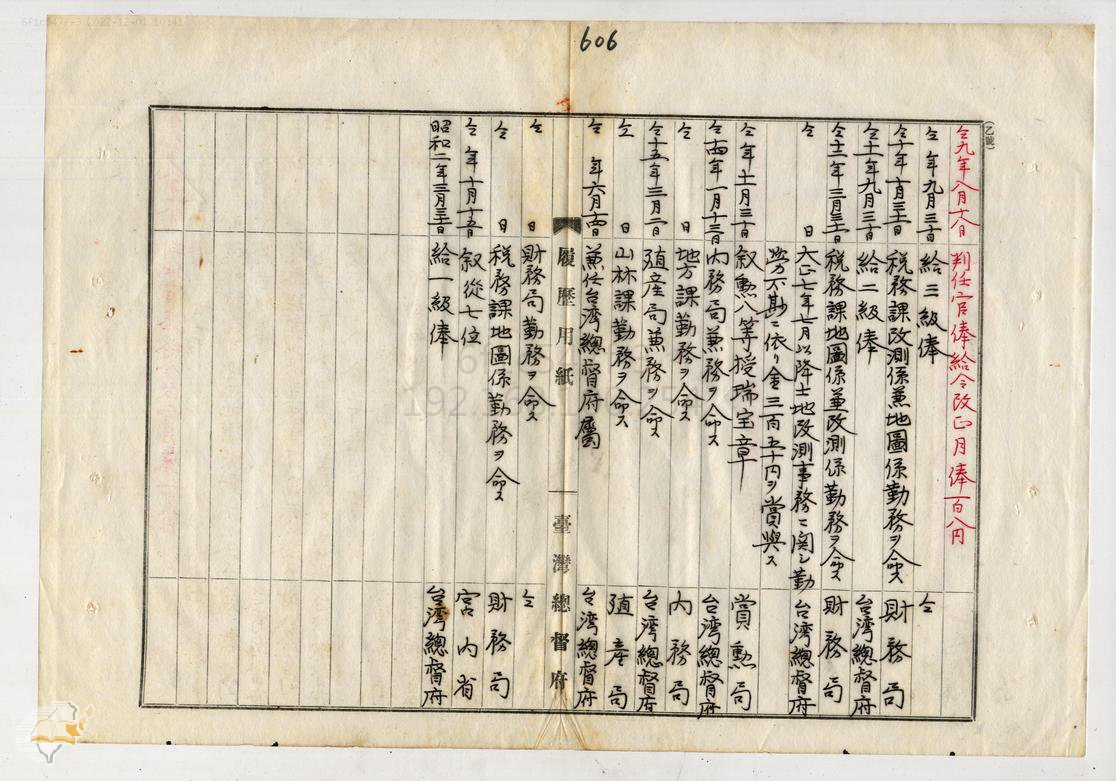 6f1c547f-3 2022-12-01 10:41
606
(乙號)
仝九年八月十八日 判任官俸給令改正月俸百八円
仝 年九月三十日 給三級俸 仝
仝十年十月三十一日 税務課改測係兼地圖係勤務ヲ命ス 財務局
仝十一年九月三十日 給二級俸 台湾總督府
仝十二年三月三十一日 税務課地圖係兼改測係勤務ヲ命ス 財務局
仝 日 大正七年七月以降土地改測事務ニ関シ勤 台湾總督府
労不尠ニ依リ金三百五十円ヲ賞與ス
仝 年十一月三十日 叙勲八等授瑞宝章 賞勲局
仝十四年一月十三日 内務局兼務ヲ命ス 台湾總督府
仝 日 地方課勤務ヲ命ス 内務局
仝十五年三月二日 殖産局兼務ヲ命ス 台湾總督府
仝 日 山林課勤務ヲ命ス 殖産局
仝 年六月十四日 兼任台湾總督府屬 台湾總督府
履歷用紙 臺灣總督府
仝 日 財務局勤務ヲ命ス 仝
仝 日 税務課地圖係勤務ヲ命ス 財務局
仝 年十月十五日 叙従七位 宮内省
昭和二年三月三十一日 給一級俸 台湾總督府